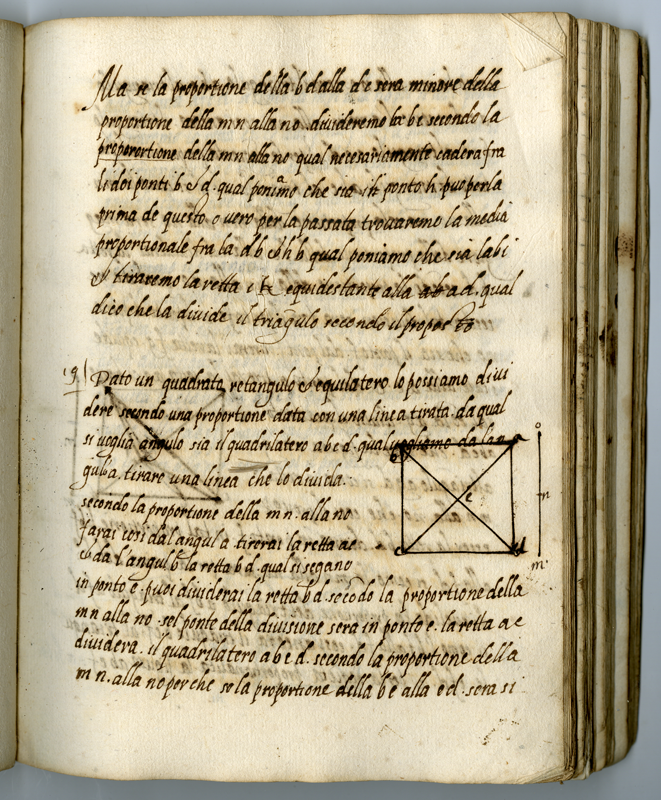 Ma se la proportione della b d alla d e sera minore della
proportione della m n alla n o divideremo la b e secondo la
properortione della m n alla no qual necesariamente cadera fra
li doi ponti b & d. qual poniamo che sia il ponto h. puo per la
prima de questo o vero per la passata trovaremo la media
proportionale fra la d b & h b qual poniamo che sia la b i
& tiraremo la retta i k equidestante alla ab a d. qual
dico che la divide il triangulo secondo il propos to
19 Dato un quadrato retangulo & equilatero lo possiamo divi
dere secondo una proportione data con una linea tirata da qual
si voglia angulo sia il quadrilatero a b c d. qual vogliamo da lan
gulo a. tirare una linea che lo divida.
secondo la proportione della m n. alla no
farai cosi dal angul a tirerai la retta ae
& da l'angul b la retta b d. qual si segano
in ponto e. puoi dividerai la retta b d. secōdo la proportione della
m n alla no. sel ponte della divisione sera in ponto e. la retta a e
dividera. il quadrilatero a b c d. secondo la proportione della
m n. alla no per che se la proportione della b e alla e d. sera si
b
a
e
c
d
o
n
m